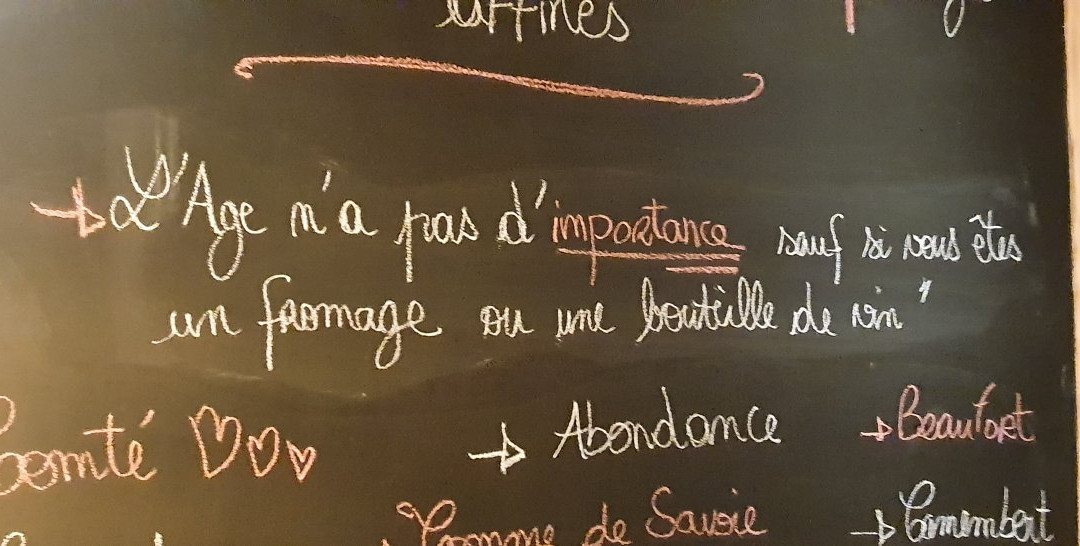 → L'Age n'a pas d'importance sauf si vous êtes
un fromage ou une bouteille de vin"
Comté → Abondance → Beaufort
Tomme de Savoie → Camembert